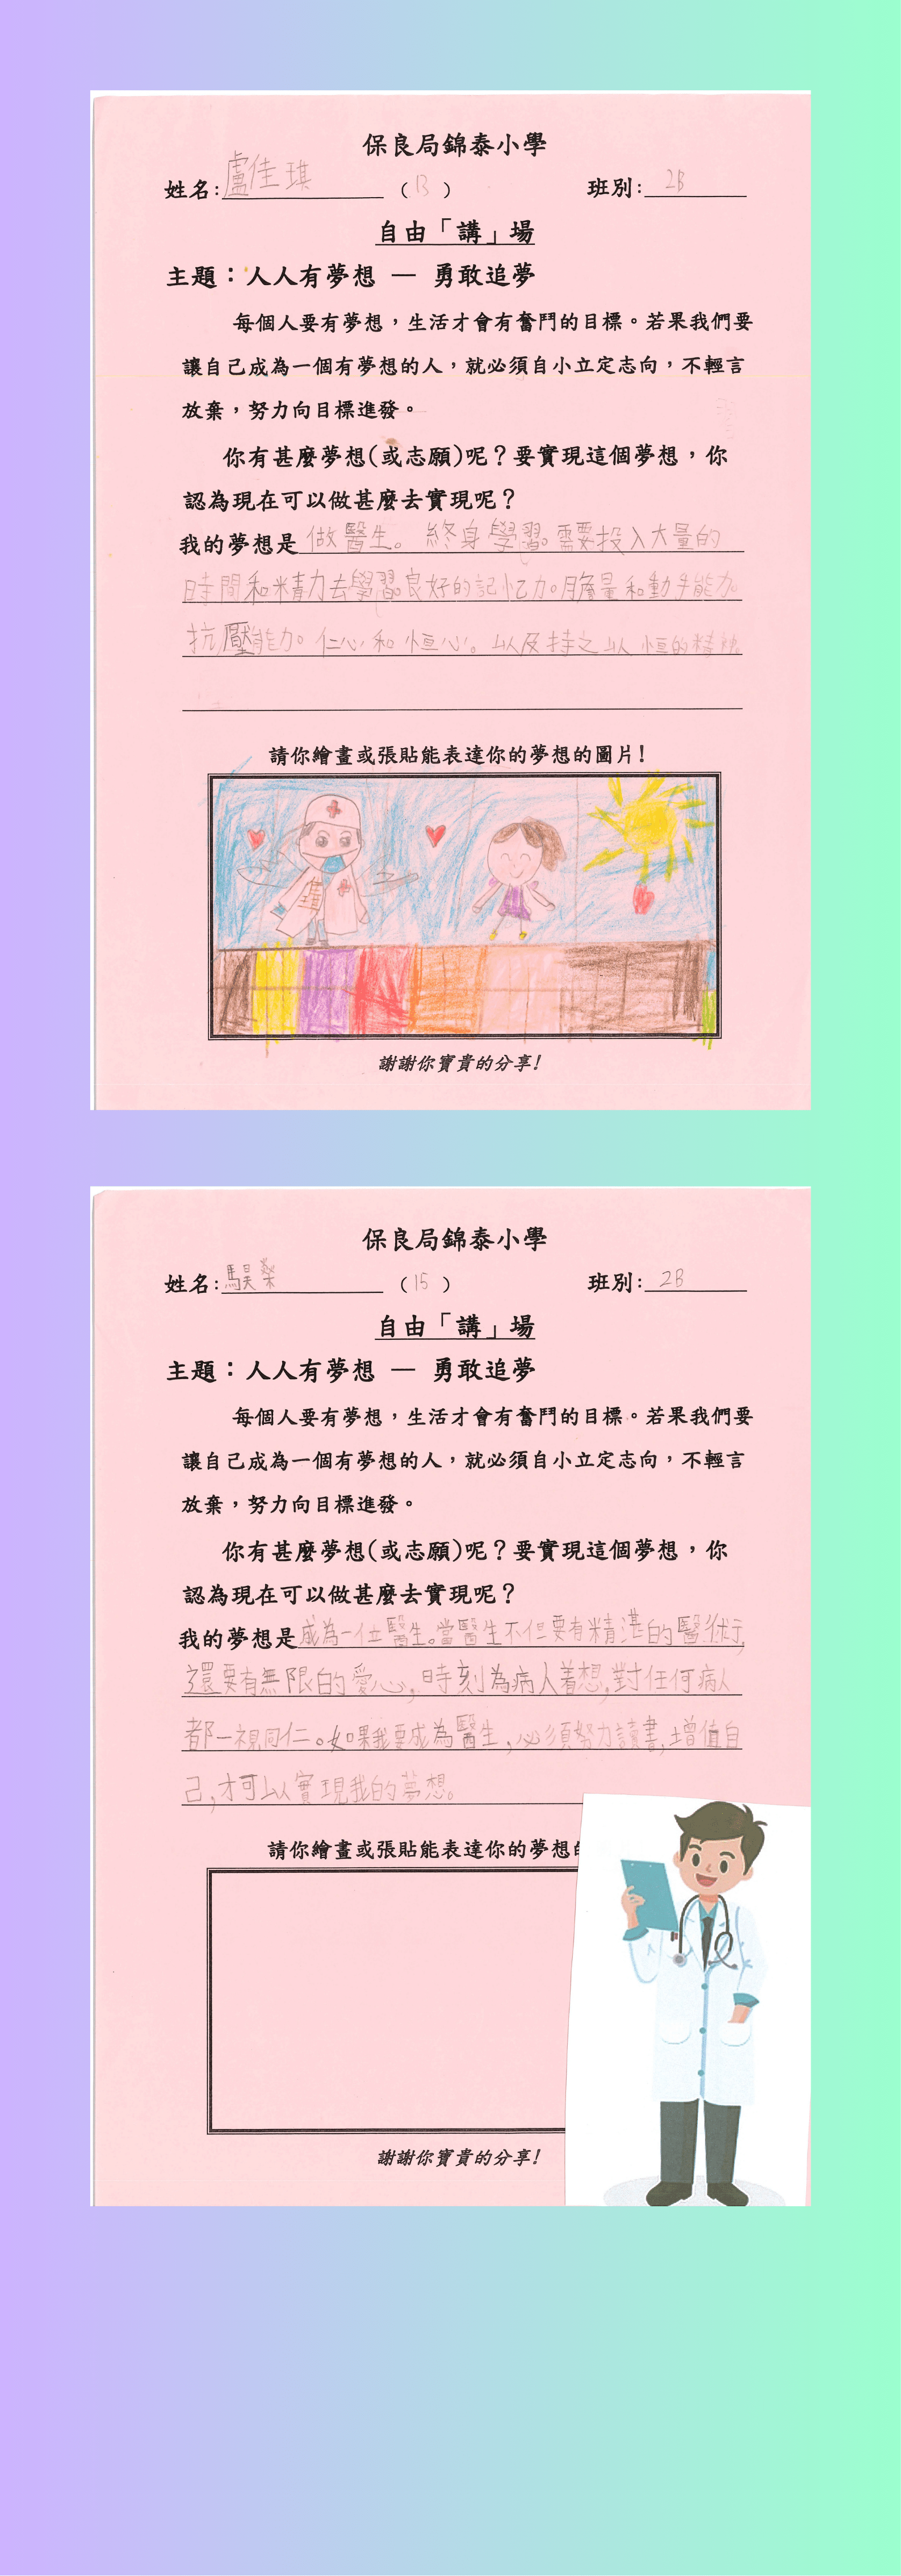 保良局錦泰小學
姓名：盧佳琪（13）班別：2B
自由「講」場
主題：人人有夢想 — 勇敢追夢
每個人要有夢想，生活才會有奮鬥的目標。若果我們要
讓自己成為一個有夢想的人，就必須自小立定志向，不輕言
放棄，努力向目標進發。
你有甚麼夢想(或志願)呢？要實現這個夢想，你
認為現在可以做甚麼去實現呢？
我的夢想是做醫生。終身學習。需要投入大量的
時間和精力去學習。良好的記忆力。膽量和動手能力。
抗壓能力。仁心和恒心。以及持之以恒的精神。
請你繪畫或張貼能表達你的夢想的圖片！
謝謝你寶貴的分享！
保良局錦泰小學
姓名：馬昊燊（15）班別：2B
自由「講」場
主題：人人有夢想 — 勇敢追夢
每個人要有夢想，生活才會有奮鬥的目標。若果我們要
讓自己成為一個有夢想的人，就必須自小立定志向，不輕言
放棄，努力向目標進發。
你有甚麼夢想(或志願)呢？要實現這個夢想，你
認為現在可以做甚麼去實現呢？
我的夢想是成為一位醫生。當醫生不但要有精湛的醫術，
還要有無限的愛心，時刻為病人着想，對任何病人
都一視同仁。如果我要成為醫生，必須努力讀書，增值自
己，才可以實現我的夢想。
請你繪畫或張貼能表達你的夢想的
謝謝你寶貴的分享！